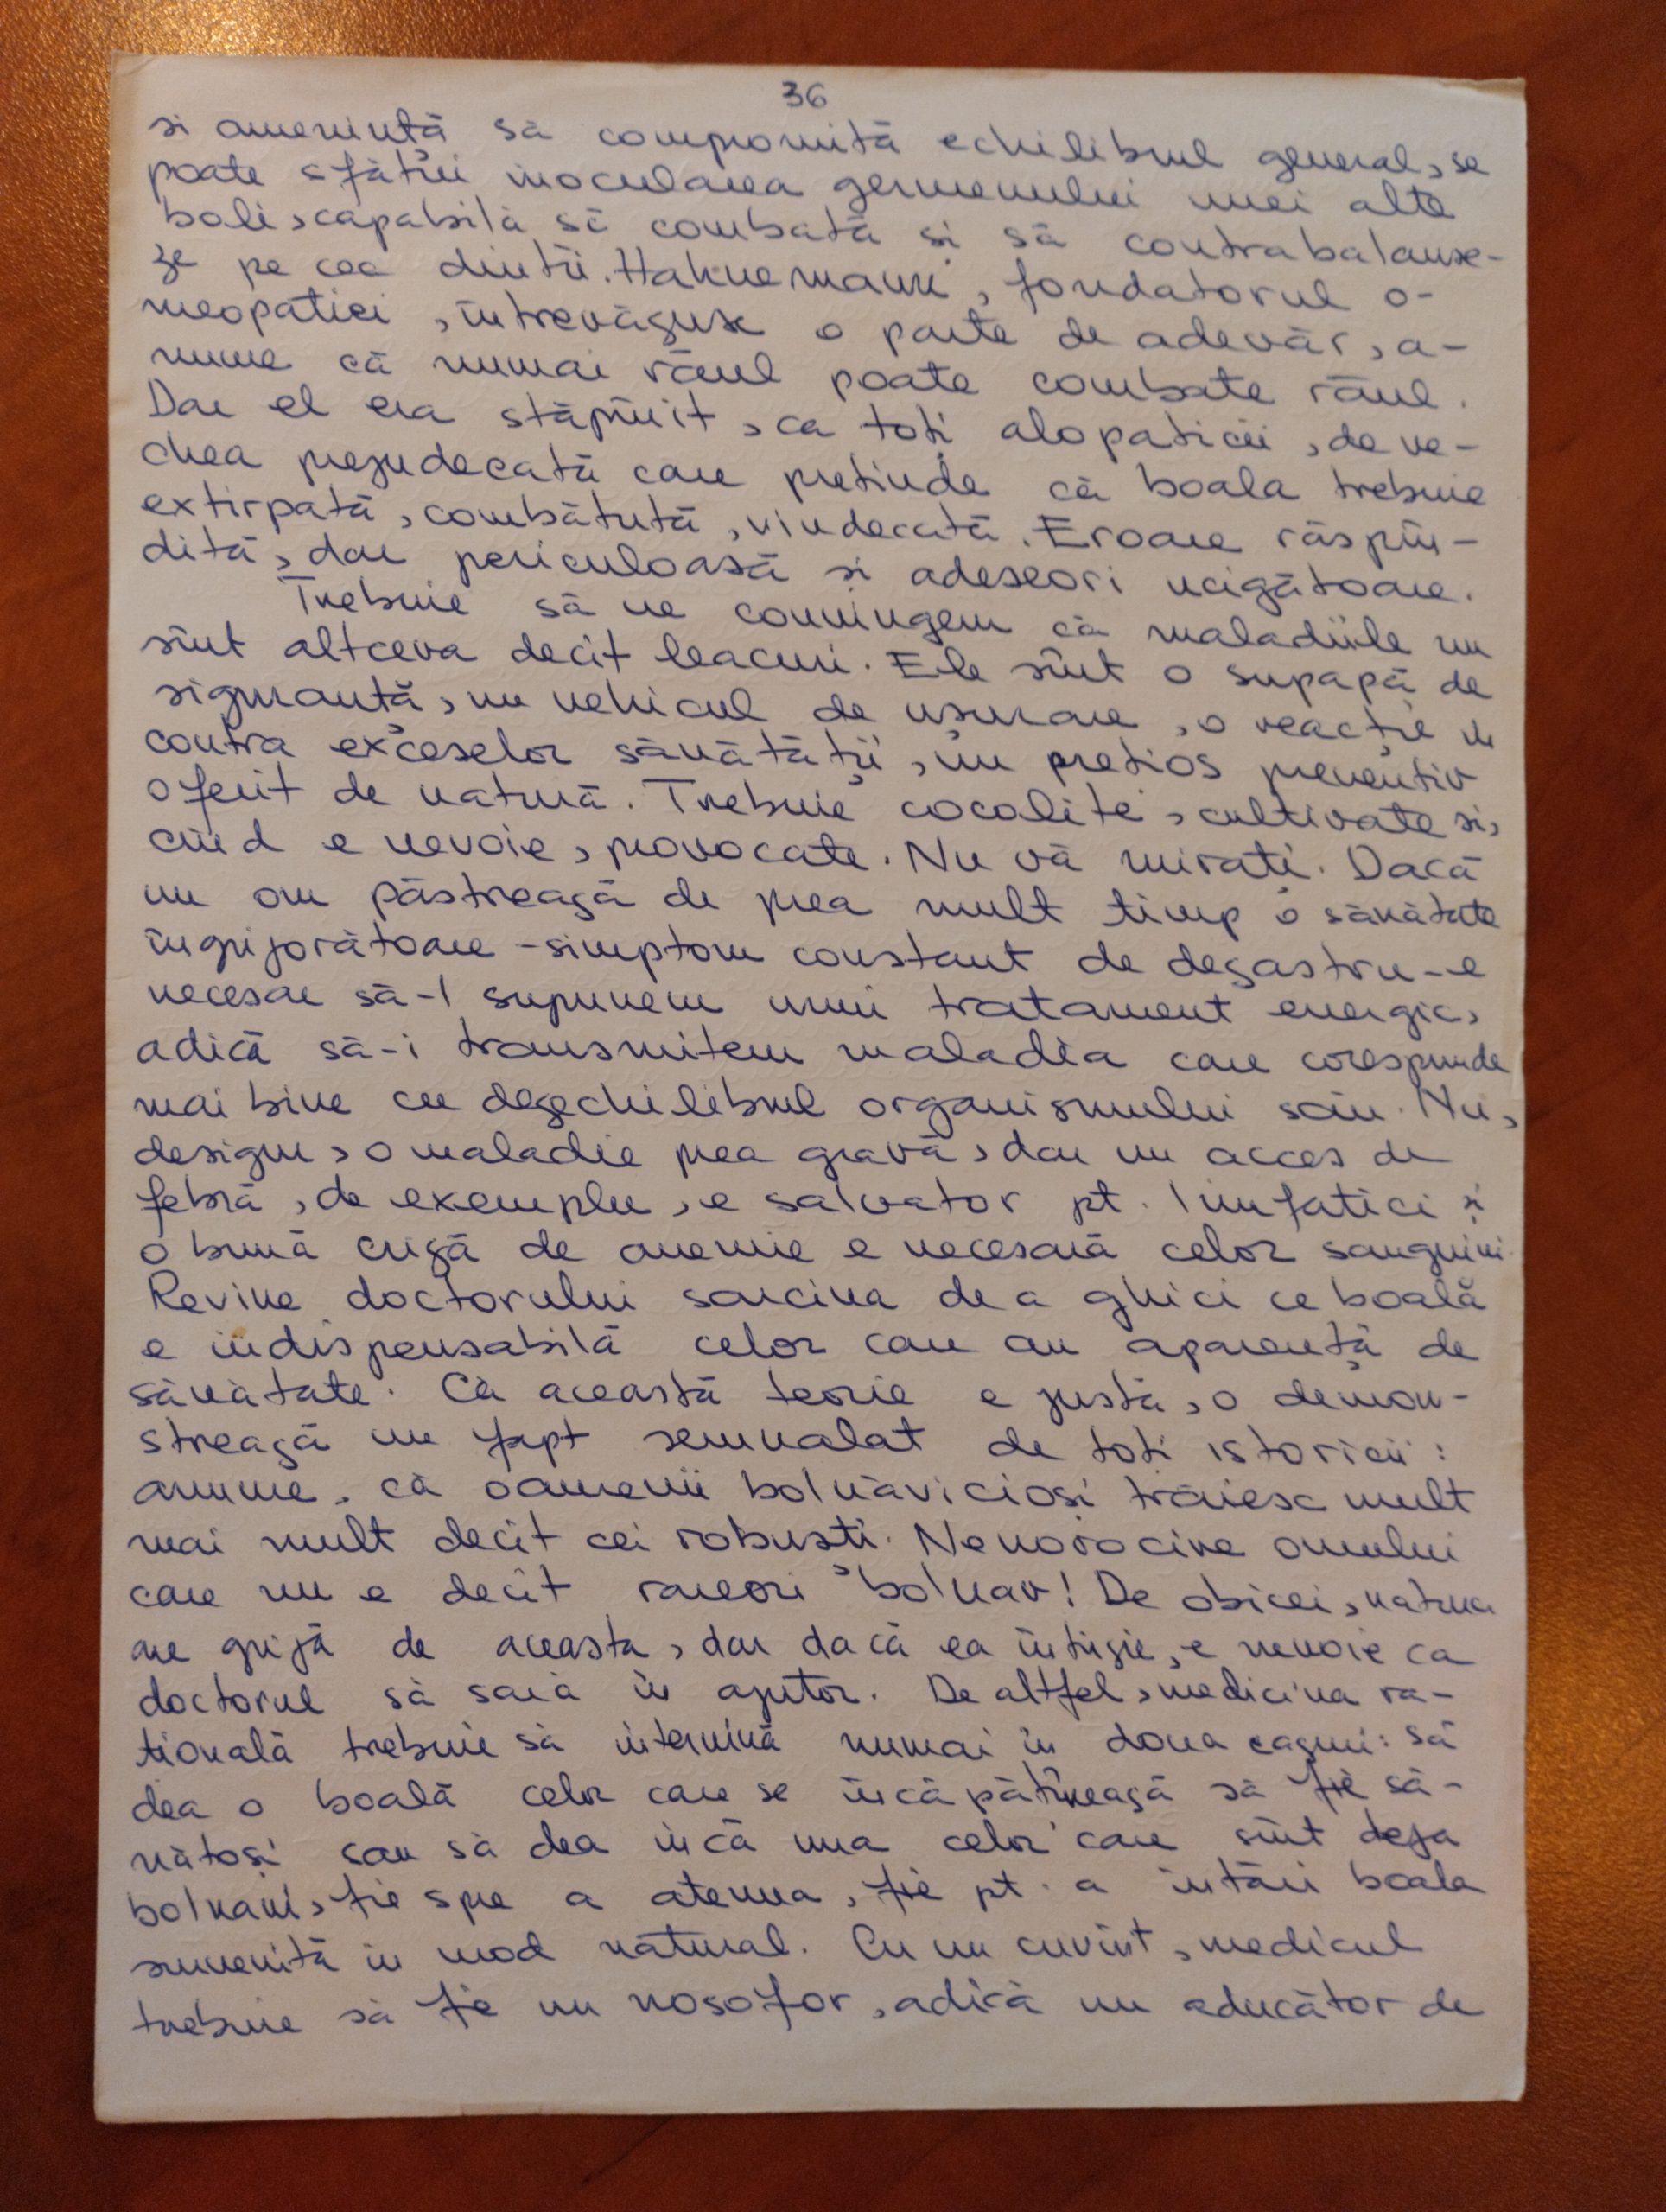 36
si amenință să compromită echilibrul general, se
poate sfătui inocularea germenului unei alte
boli, capabilă să combată și să contrabalanse-
ze pe cea dintîi. Hahnemann, fondatorul o-
meopatiei, întrevăzuse o parte de adevăr, a-
nume că numai răul poate combate răul.
Dar el era stăpînit, ca toți alopaticii, de ve-
chea prejudecată care pretinde că boala trebuie
extirpată, combătută, vindecată. Eroare răspîn-
dită, dar periculoasă și adeseori ucigătoare.
Trebuie să ne convingem că maladiile nu
sînt altceva decît leacuri. Ele sînt o supapă de
siguranță, un vehicul de ușurare, o reacție în
contra exceselor sănătății, un prețios preventiv
oferit de natură. Trebuie cocolite, cultivate si,
cînd e nevoie, provocate. Nu vă mirați. Dacă
un om păstrează de prea mult timp o sănătate
îngrijorătoare - simptom constant de dezastru - e
necesar să-l supunem unui tratament energic,
adică să-i transmitem maladia care corespunde
mai bine cu dezechilibrul organismului său. Nu,
desigur, o maladie prea gravă, dar un acces de
febră, de exemplu, e salvator pt. limfatici și
o bună criză de anemie e necesară celor sanguini.
Revine doctorului sarcina de a ghici ce boală
e indispensabilă celor care au aparență de
sănătate. Că această teorie e justă, o demon-
strează un fapt semnalat de toți istoricii:
anume, că oamenii bolnăvicioși trăiesc mult
mai mult decît cei robusti. Nenorocire omului
care nu e decît rareori bolnav! De obicei, natura
are grijă de aceasta, dar dacă ea întîrzie, e nevoie ca
doctorul să sară în ajutor. De altfel, medicina ra-
țională trebuie să intervină numai în doua cazuri: să
dea o boală celor care se încăpățînează să fie să-
nătoși sau să dea încă una celor care sînt deja
bolnavi, fie spre a atenua, fie pt. a întări boala
survenită în mod natural. Cu un cuvînt, medicul
trebuie să fie un nosofor, adică un aducător de